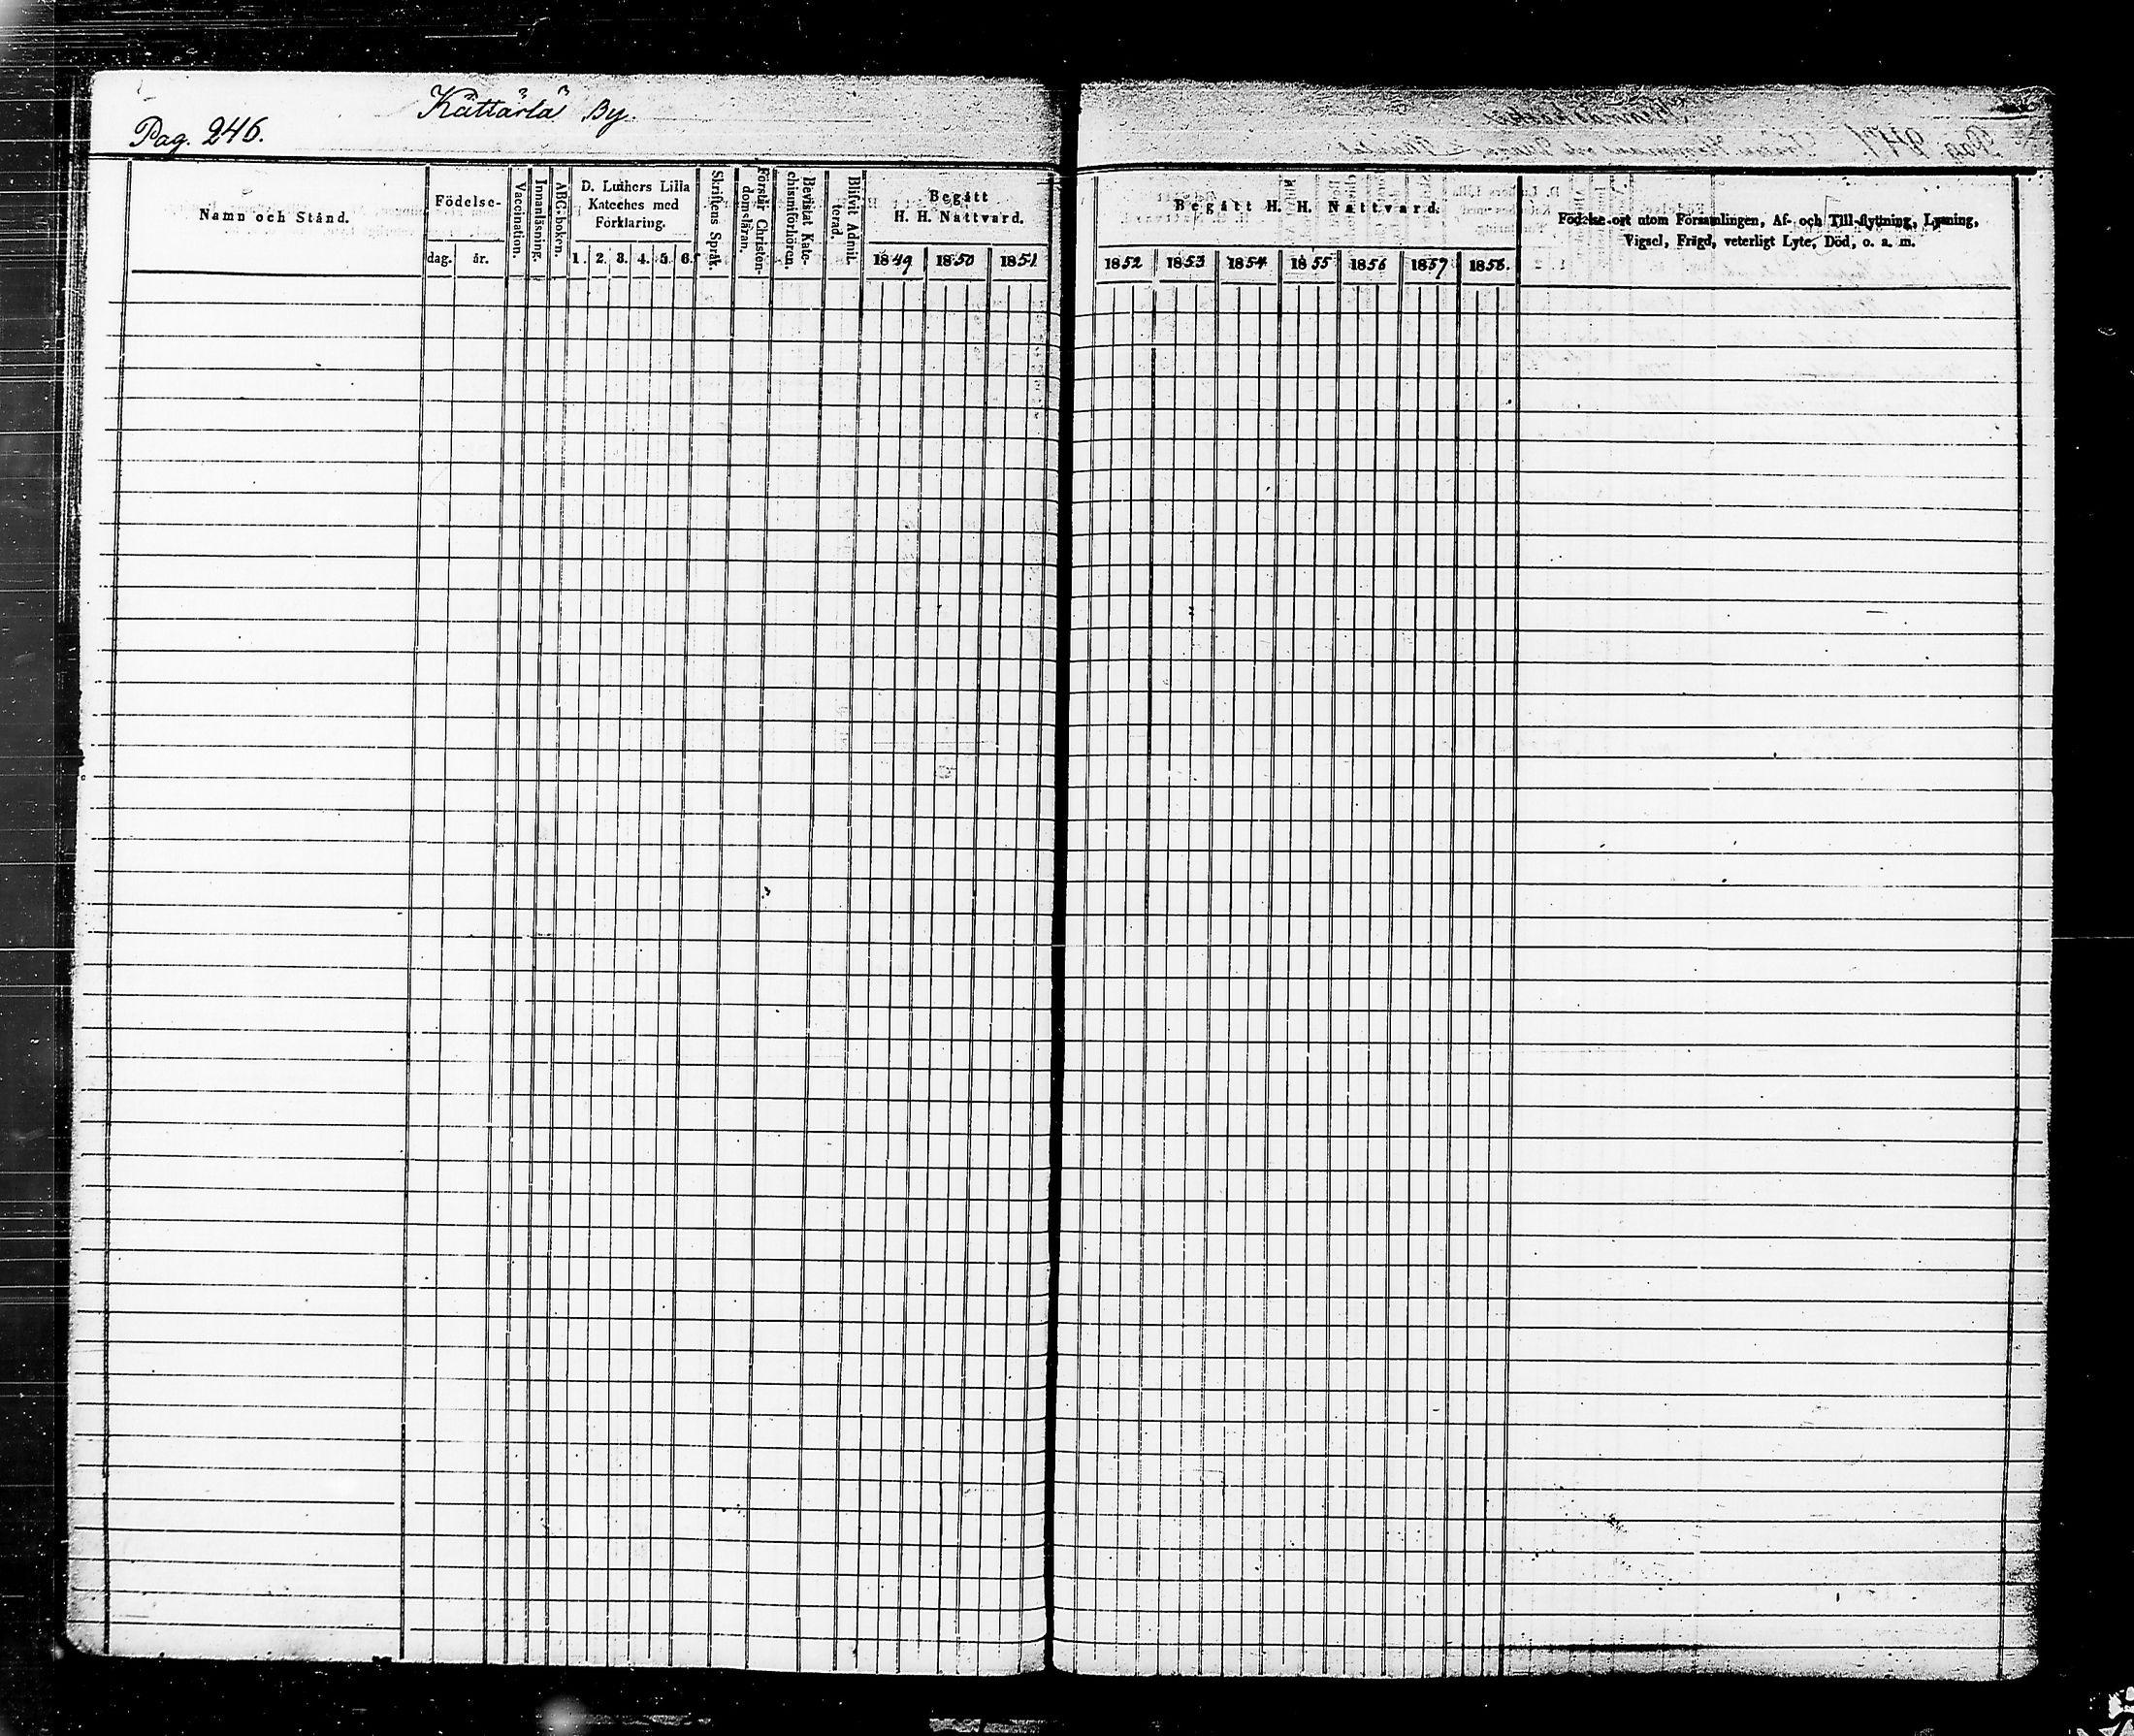 Pag. 246.
Kättärlä By.
Namn och Stånd.
Födelse-
dag.
år.
Vaccination.
Innanläsning.
ABC-boken.
D. Luthers Lilla
Kateches med
Förklaring.
1. 2. 3. 4. 5. 6.
Skriftens Språk.
Förstår Christen-
domsläran.
Bevistat Kate-
chismiförhören.
Blifvit Admit-
terad.
Begått
H. H. Nattvard.
1849 1850 1851
Begått H. H. Nattvard.
1852 1853 1854 1855 1856 1857 1858.
Födelse-ort utom Församlingen, Af- och Till-flyttning, Lysning,
Vigsel, Frägd, veterligt Lyte, Död, o. s. m.